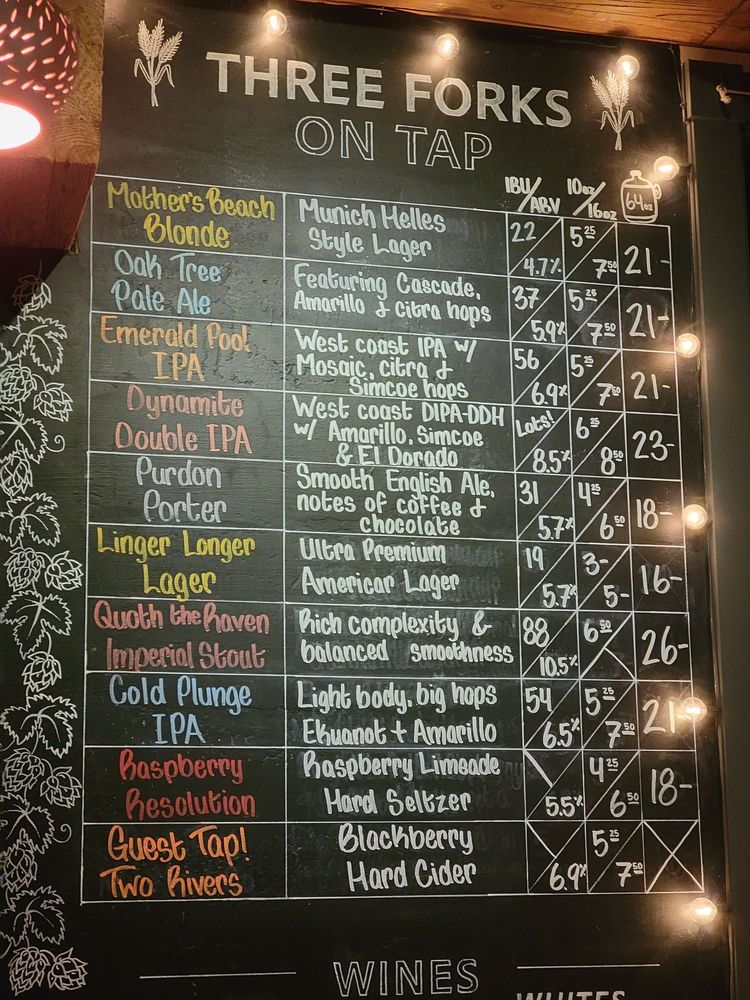 THREE FORKS
ON TAP
IBU/ABV 10oz/16oz 64oz
Mother's Beach
Blonde
Munich Helles
Style Lager
22
4.7%
5 25
7 50
21-
Oak Tree
Pale Ale
Featuring Cascade,
Amarillo & citra hops
37
5.9%
5 25
7 50
21-
Emerald Pool
IPA
West coast IPA w/
Mosaic, citra &
Simcoe hops
56
6.9%
5 25
7 50
21-
Dynamite
Double IPA
West coast DIPA-DDH
w/ Amarillo, Simcoe
& El Dorado
Lots!
8.5%
6 25
8 50
23-
Purdon
Porter
Smooth English Ale,
notes of coffee &
chocolate
31
5.7%
4 25
6 50
18-
Linger Longer
Lager
Ultra Premium
American Lager
19
5.7%
3-
5-
16-
Quoth the Raven
Imperial Stout
Rich complexity &
balanced smoothness
88
10.5%
6 50
26-
Cold Plunge
IPA
Light body, big hops
Ekuanot + Amarillo
54
6.5%
5 25
7 50
21-
Raspberry
Resolution
Raspberry Limeade
Hard Seltzer
5.5%
4 25
6 50
18-
Guest Tap!
Two Rivers
Blackberry
Hard Cider
6.9%
5 25
7 50
WINES
WHITES